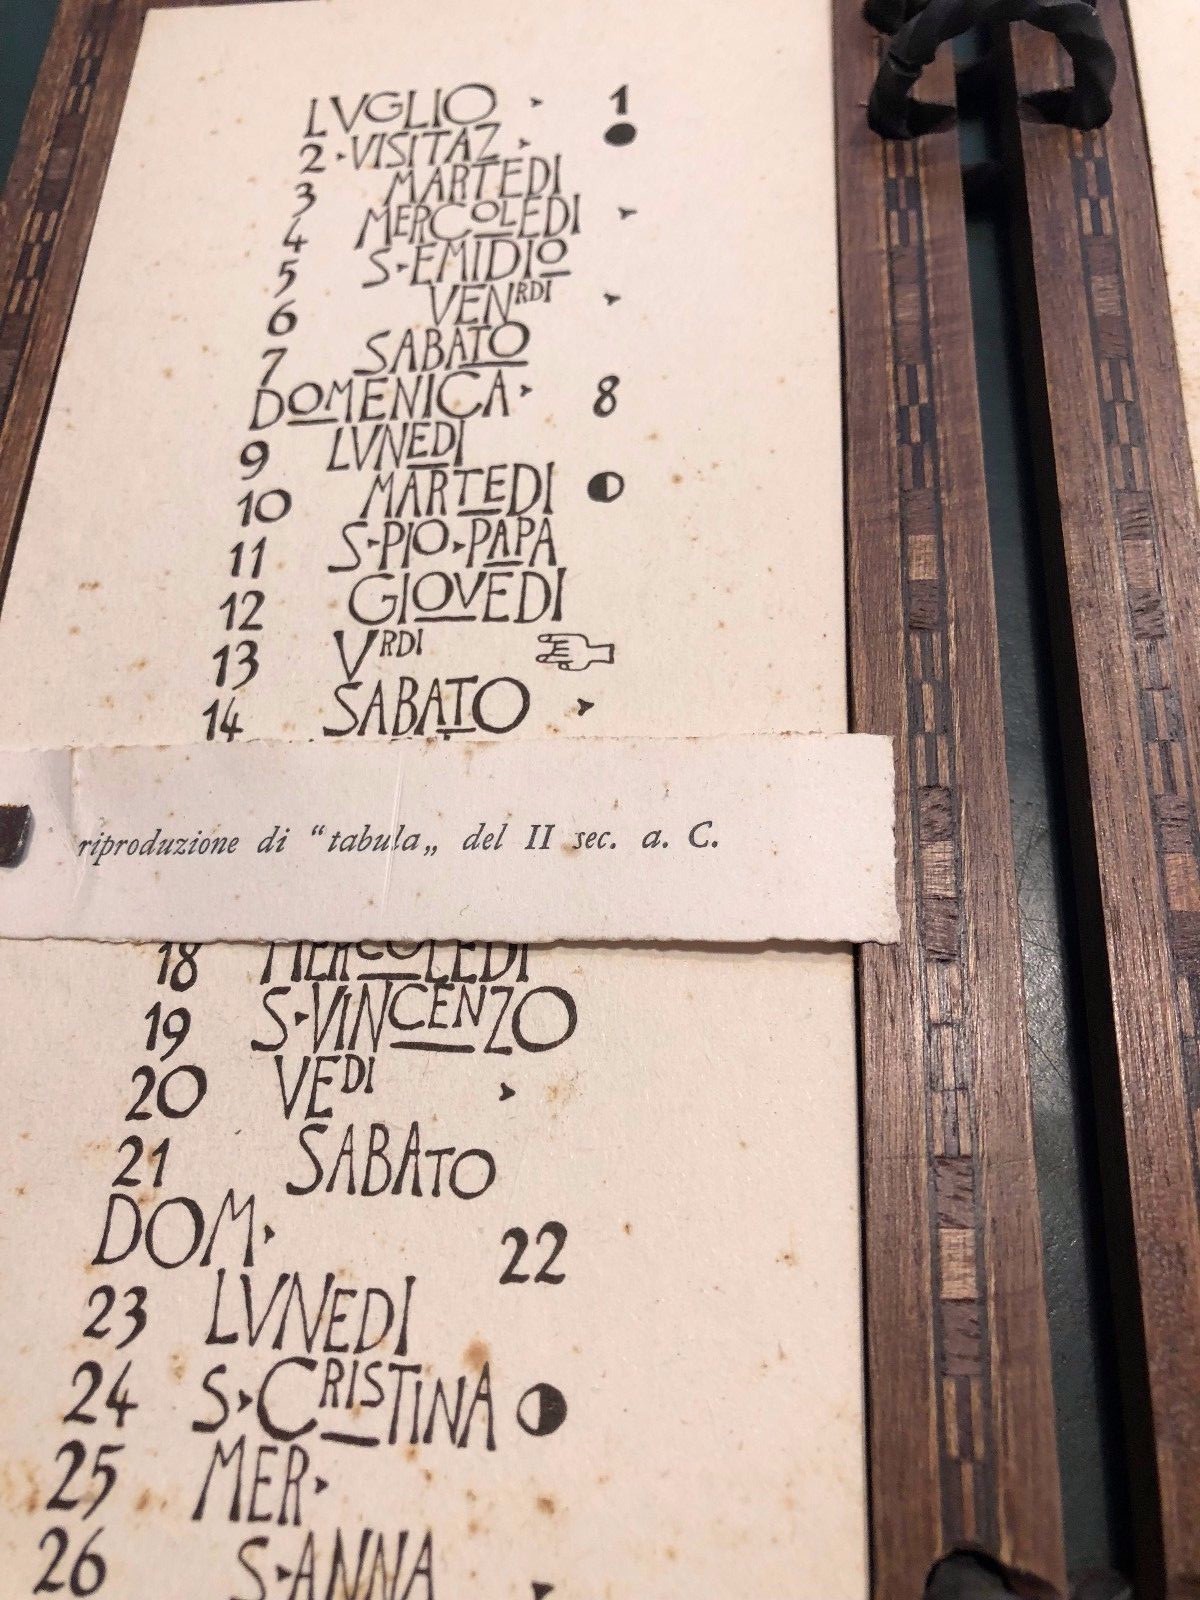 LVGLIO 1
2 · VISITAZ ·
3 MARTEDI
4 MERCOLEDI
5 S · EMIDIO
6 VENRDI
7 SABATO
DOMENICA · 8
9 LVNEDI
10 MARTEDI
11 S · PIO · PAPA
12 GIOVEDI
13 VRDI
14 SABATO
riproduzione di “tabula„ del II sec. a. C.
18 MERCOLEDI
19 S · VINCENZO
20 VEDI
21 SABATO
DOM · 22
23 LVNEDI
24 S · CRISTINA
25 MER ·
26 S · ANNA